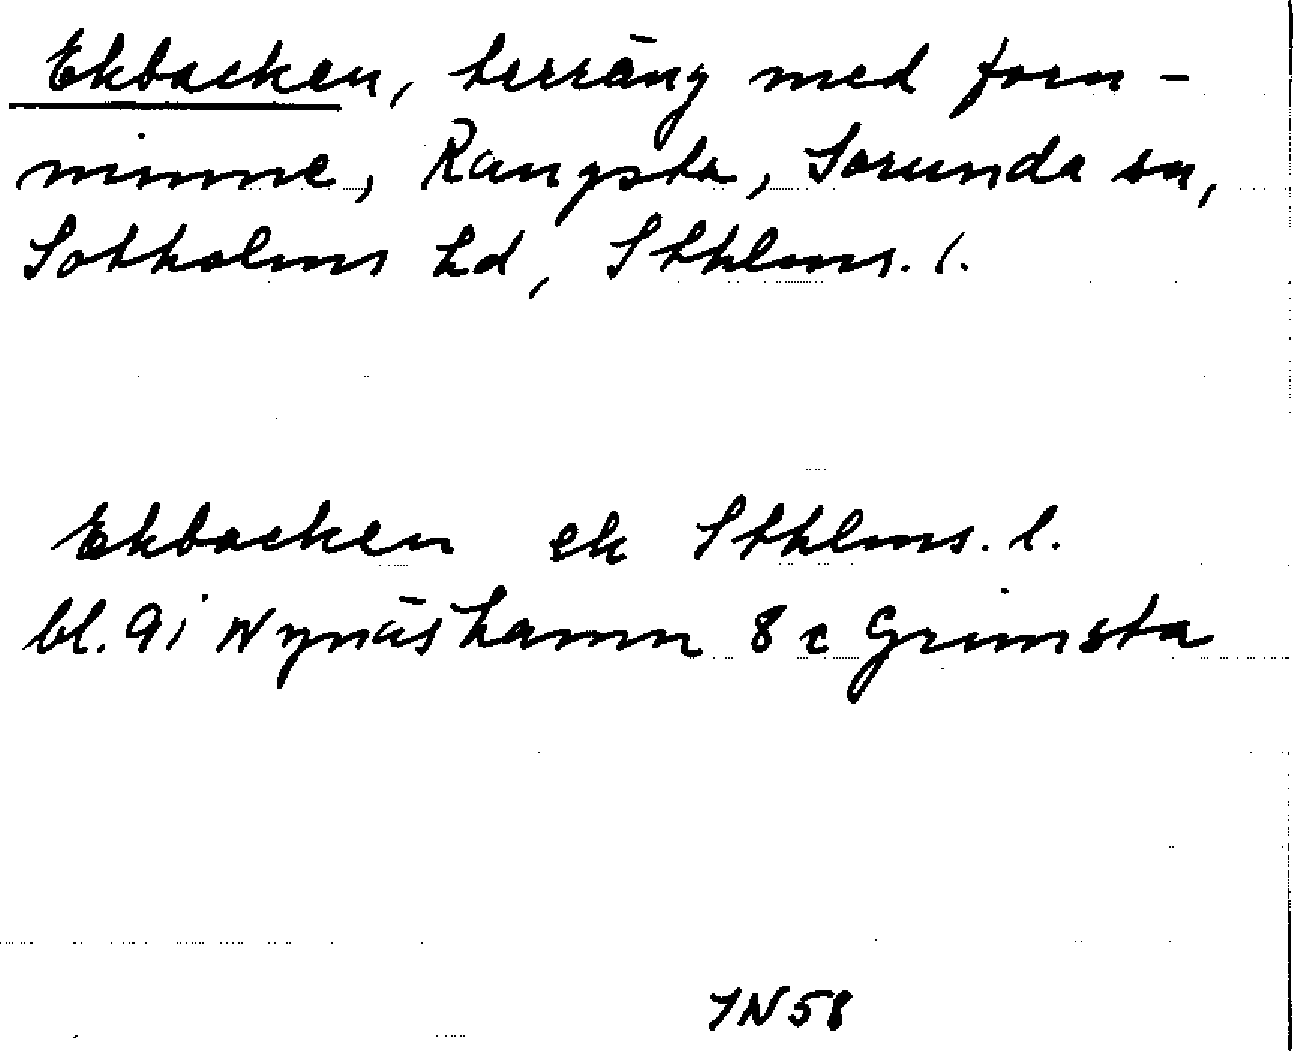 Ekbacken, terräng med forn-
minne, Rangsta, Sorunda sn,
Sotholms hd, Sthlms. l.
Ekbacken ek Sthlms. l.
bl. 9i Nynäshamn 8c Grimsta
IN58